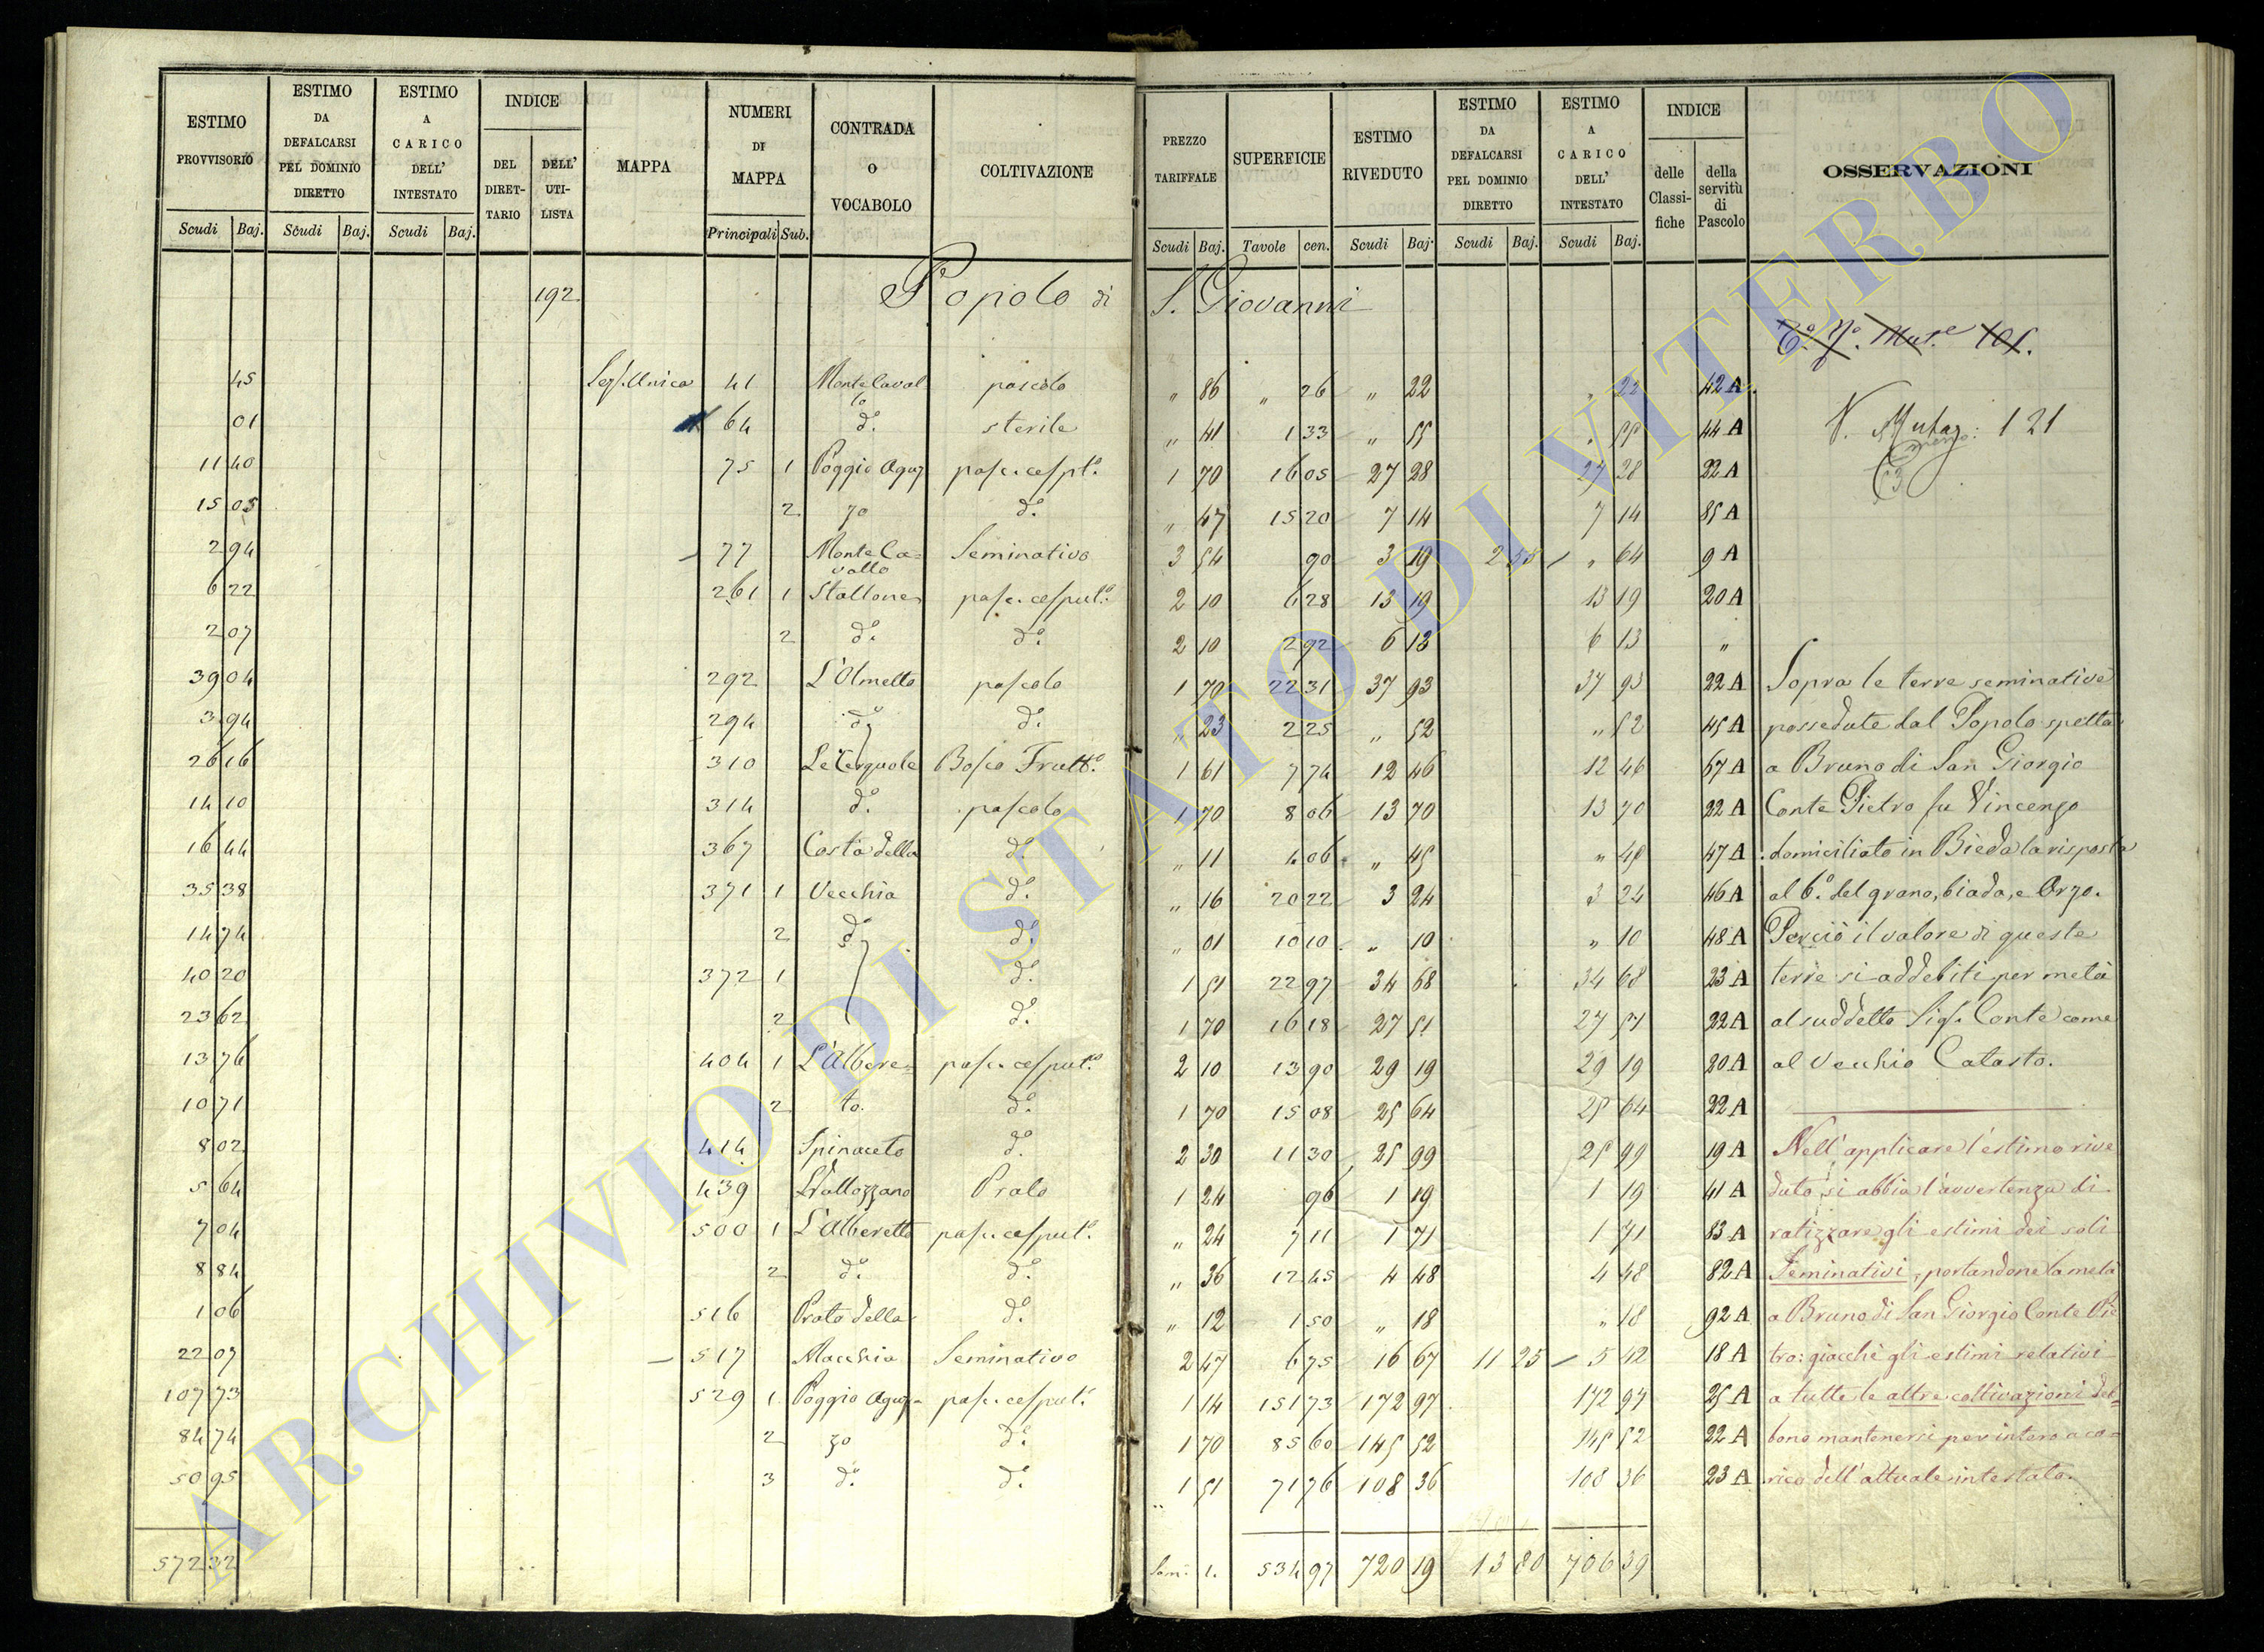 ESTIMO PROVVISORIO | ESTIMO DA DEFALCARSI PEL DOMINIO DIRETTO | ESTIMO A CARICO DELL' INTESTATO | INDICE | MAPPA | NUMERI DI MAPPA | CONTRADA O VOCABOLO | COLTIVAZIONE | PREZZO TARIFFALE | SUPERFICIE | ESTIMO RIVEDUTO | ESTIMO DA DEFALCARSI PEL DOMINIO DIRETTO | ESTIMO A CARICO DELL' INTESTATO | INDICE | OSSERVAZIONI
DEL DIRETTARIO | DELL' UTILISTA | delle Classifiche | della servitù di Pascolo
Scudi | Baj. | Scudi | Baj. | Scudi | Baj. | Principali | Sub. | Scudi | Baj. | Tavole | cen. | Scudi | Baj. | Scudi | Baj. | Scudi | Baj.
192 Popolo di S. Giovanni
45 | Sez. Unica | 41 | Monte Caval | pascolo | " 86 | " 26 | " 22 | " 22 | 42 A
01 | 64 | lo d.o | sterile | " 41 | 1 33 | " 55 | " 55 | 44 A
11 40 | 75 | 1 | Poggio Aguz | pasc. cespt.o | 1 70 | 16 05 | 27 28 | 27 28 | 22 A
15 05 | 2 | zo | d.o | " 47 | 15 20 | 7 14 | 7 14 | 85 A
2 94 | 77 | Monte Cavallo | Seminativo | 3 54 | 90 | 3 19 | 2 55 | " 64 | 9 A
6 22 | 261 | 1 | Stallone | pasc. cesput.o | 2 10 | 6 28 | 13 19 | 13 19 | 20 A
2 07 | 2 | d.o | d.o | 2 10 | 2 92 | 6 13 | 6 13 | "
39 04 | 292 | L'Olmetto | pascolo | 1 70 | 22 31 | 37 93 | 37 93 | 22 A
3 94 | 294 | d.o | d.o | " 23 | 2 25 | " 52 | " 52 | 45 A
26 16 | 310 | Le Cerquole | Bosco Frutt.o | 1 61 | 7 74 | 12 46 | 12 46 | 67 A
14 10 | 314 | d.o | pascolo | 1 70 | 8 06 | 13 70 | 13 70 | 22 A
16 44 | 367 | Costa della | d.o | " 11 | 4 06 | " 45 | " 45 | 47 A
35 38 | 371 | 1 | Vecchia | d.o | " 16 | 20 22 | 3 24 | 3 24 | 46 A
14 74 | 2 | d.o | d.o | " 01 | 10 10 | " 10 | " 10 | 48 A
40 20 | 372 | 1 | d.o | 1 51 | 22 97 | 34 68 | 34 68 | 23 A
23 62 | 2 | d.o | 1 70 | 16 18 | 27 51 | 27 51 | 22 A
13 76 | 404 | 1 | L'Albere= | pasc. cesput.o | 2 10 | 13 90 | 29 19 | 29 19 | 20 A
10 71 | 2 | to. | d.o | 1 70 | 15 08 | 25 64 | 25 64 | 22 A
8 02 | 414 | Spinaceto | d.o | 2 30 | 11 30 | 25 99 | 25 99 | 19 A
5 64 | 439 | Prato | 1 24 | 96 | 1 19 | 1 19 | 41 A
7 04 | 500 | 1 | L'Alberetto | pasc. cesput.o | " 24 | 7 11 | 1 71 | 1 71 | 83 A
8 84 | 2 | d.o | d.o | " 36 | 12 45 | 4 48 | 4 48 | 82 A
1 06 | 516 | Prato della | d.o | " 12 | 1 50 | " 18 | " 18 | 92 A
22 07 | 517 | Macchia | Seminativo | 2 47 | 6 75 | 16 67 | 11 25 | 5 42 | 18 A
107 73 | 529 | 1 | Poggio Aguz= | pasc. cesput.o | 1 14 | 151 73 | 172 97 | 172 97 | 25 A
84 74 | 2 | zo | d.o | 1 70 | 85 60 | 145 52 | 145 52 | 22 A
50 95 | 3 | d.o | d.o | 1 51 | 71 76 | 108 36 | 108 36 | 23 A
572 32 | Som: 1. | 534 97 | 720 19 | 13 80 | 706 39
V. Mutaz: 121
Sopra le terre seminative
possedute dal Popolo spetta
a Bruno di San Giorgio
Conte Pietro fu Vincenzo
domiciliato in Bieda la risposta
al 6.o del grano, biada, e Orzo.
Perciò il valore di queste
terre si addebiti per metà
al suddetto Sig. Conte come
al Vecchio Catasto.
Nell'applicare l'estimo rive
duto, si abbia l'avvertenza di
ratizzare gli estimi dei soli
Seminativi, portandone la metà
a Bruno di San Giorgio Conte Pie
tro: giacchè gli estimi relativi
a tutte le altre coltivazioni deb=
bono mantenersi per intero a ca=
rico dell'attuale intestato.
ARCHIVIO DI STATO DI VITERBO